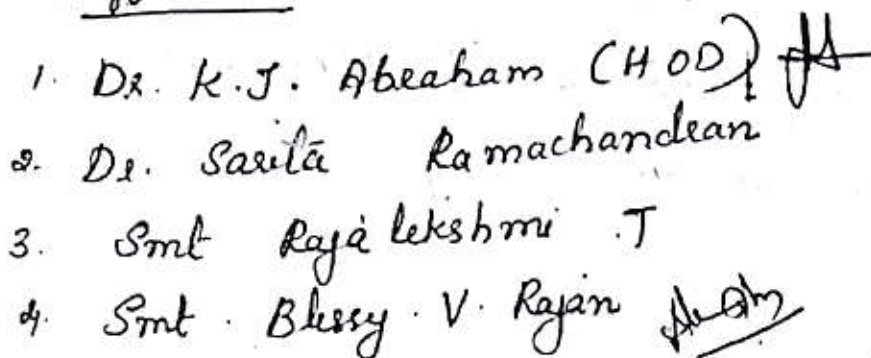 1. Dr. K.J. Abraham (HOD)
2. Dr. Sarita Ramachandran
3. Smt Rajalekshmi .T
4. Smt. Blessy. V. Rajan